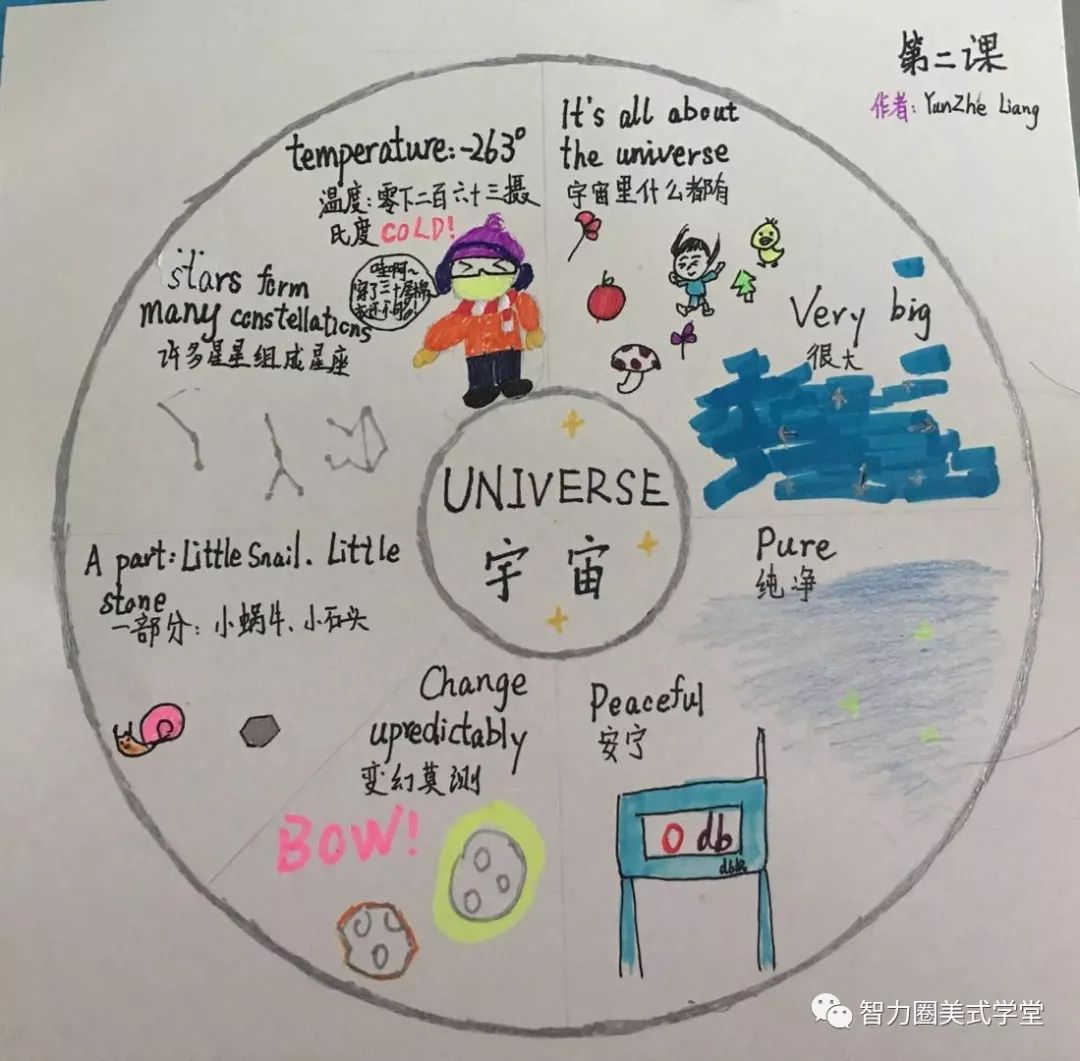 第二课
作者: YunZhe Liang
It's all about
the universe
宇宙里什么都有
Very big
很大
Pure
纯净
Peaceful
安宁
0 db
Change
upredictably
变幻莫测
BOW!
A part: Little Snail. Little
stone
一部分: 小蜗牛、小石头
stars form
many constellations
许多星星组成星座
temperature: -263°
温度: 零下二百六十三摄
氏度 COLD!
哇啊~
穿了三十层棉
衣还不够!
UNIVERSE
宇宙
智力圈美式学堂